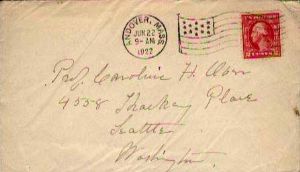 ANDOVER, MASS.
JUN 22
9 - AM
1922
Prof. Caroline H. Ober
4558 Thackeray Place
Seattle
Washington.